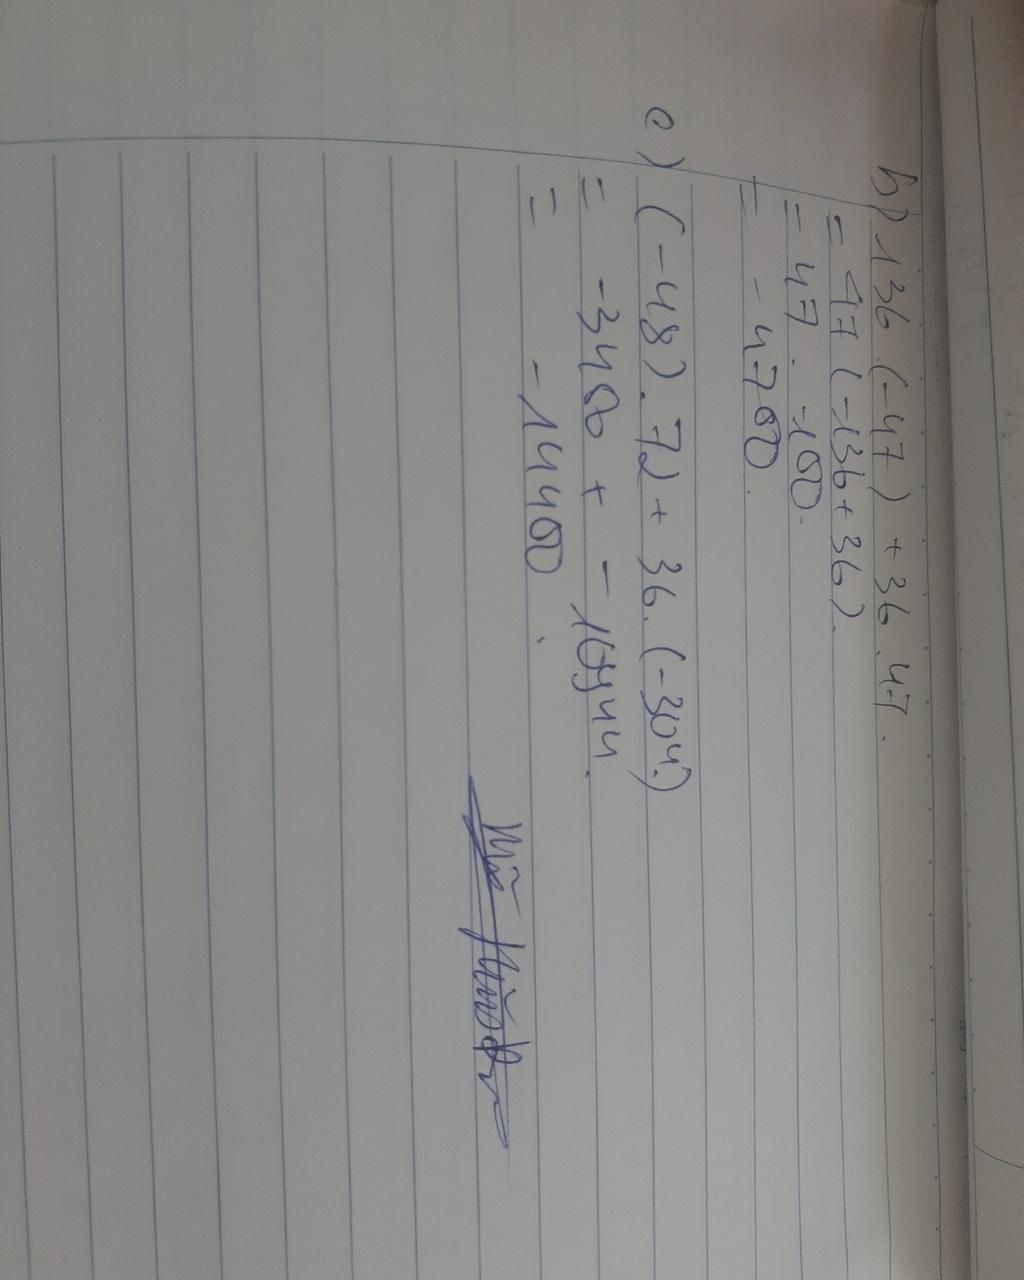 b) 136 . (-47) + 36 . 47 .
= 47 (-136 + 36) .
= 47 . -100 .
= - 4700 .
c) (-48) . 72 + 36 . (-304)
= -3456 + - 10944 .
= -14400 .